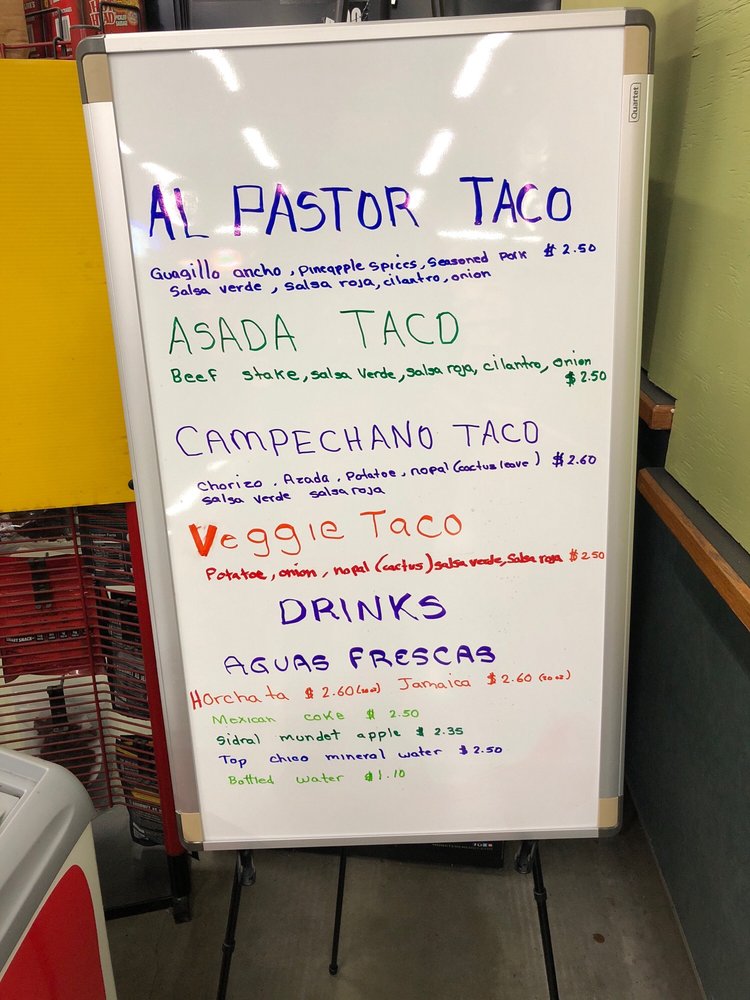 Quartet
AL PASTOR TACO
Guagillo ancho, pineapple spices, seasoned pork $ 2.50
salsa verde, salsa roja, cilantro, onion
ASADA TACO
Beef stake, salsa verde, salsa roja, cilantro, onion
$ 2.50
CAMPECHANO TACO
Chorizo, Azada, Potatoe, nopal (cactus leave) $ 2.60
salsa verde salsa roja
Veggie Taco
Potatoe, onion, nopal (cactus) salsa verde, salsa roja $ 2.50
DRINKS
AGUAS FRESCAS
Horchata $ 2.60 (20oz) Jamaica $ 2.60 (20oz)
Mexican coke $ 2.50
Sidral mundet apple $ 2.35
Top chico mineral water $ 2.50
Bottled water $1.10